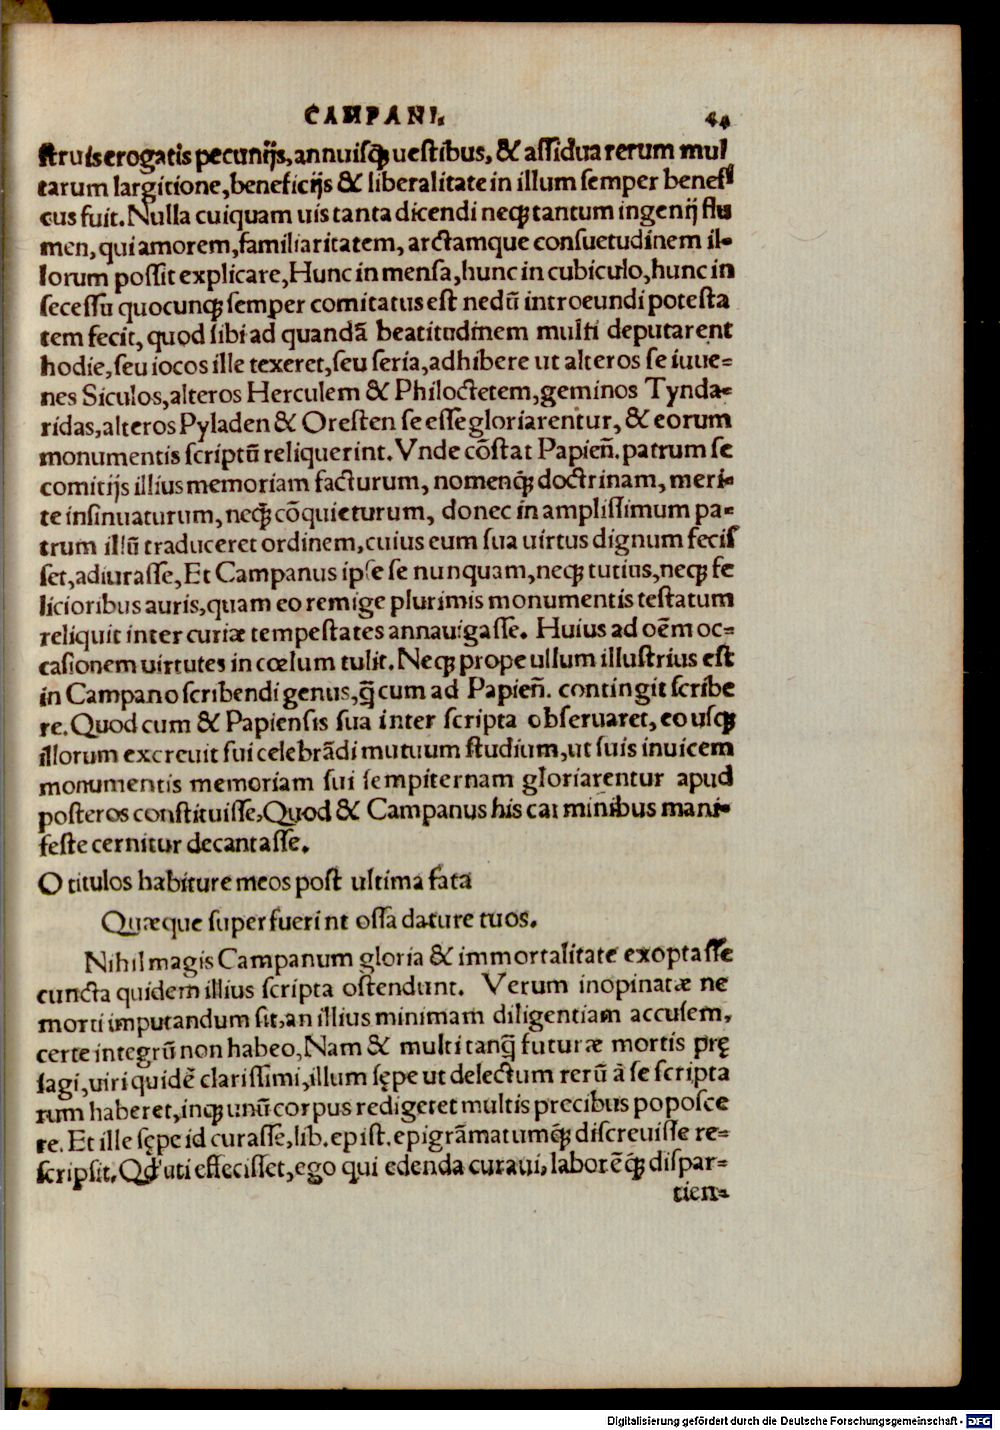 CAMPANI. 44
struis erogatis pecunijs, annuisq; uestibus, & assidua rerum mul
tarum largitione, beneficijs & liberalitate in illum semper benefi
cus fuit. Nulla cuiquam uis tanta dicendi neq; tantum ingenij flu
men, qui amorem, familiaritatem, arctamque consuetudinem il-
lorum possit explicare, Hunc in mensa, hunc in cubiculo, hunc in
secessu quocunq; semper comitatus est nedū introeundi potesta
tem fecit, quod sibi ad quandā beatitudinem multi deputarent
hodie, seu iocos ille texeret, seu seria, adhibere ut alteros se iuue=
nes Siculos, alteros Herculem & Philoctetem, geminos Tynda=
ridas, alteros Pyladen & Oresten se esse gloriarentur, & eorum
monumentis scriptū reliquerint. Vnde cōstat Papień. patrum se
comitijs illius memoriam facturum, nomenq; doctrinam, meri-
te insinuaturum, neq; cōquieturum, donec in amplissimum pa=
trum illū traduceret ordinem, cuius eum sua uirtus dignum fecis
set, adiurasse, Et Campanus ipse se nunquam, neq; tutius, neq; fe
licioribus auris, quam eo remige plurimis monumentis testatum
reliquit inter curiæ tempestates annauigasse. Huius ad oēm oc=
casionem uirtutes in cœlum tulit. Neq; prope ullum illustrius est
in Campano scribendi genus, q̄ cum ad Papień. contingit scribe
re. Quod cum & Papiensis sua inter scripta obseruaret, eo usq;
illorum excreuit sui celebrādi mutuum studium, ut suis inuicem
monumentis memoriam sui sempiternam gloriarentur apud
posteros constituisse, Quod & Campanus his carminibus mani-
feste cernitur decantasse.
O titulos habiture meos post ultima fata
Quæque superfuerint ossa dature tuos.
Nihil magis Campanum gloria & immortalitate exoptasse
cuncta quidem illius scripta ostendunt. Verum inopinatæ ne
morti imputandum sit, an illius minimam diligentiam accusem,
certe integrū non habeo, Nam & multi tanq̄ futuræ mortis prę
sagi, uiri quidē clarissimi, illum sępe ut delectum rerū à se scripta
rum haberet, inq; unū corpus redigeret multis precibus poposce
re. Et ille sępe id curasse, lib. epist. epigrāmatumq; discreuisse re=
scripsit. Qd' uti effecisset, ego qui edenda curaui, laborēq; dispar=
tien=
Digitalisierung gefördert durch die Deutsche Forschungsgemeinschaft - DFG